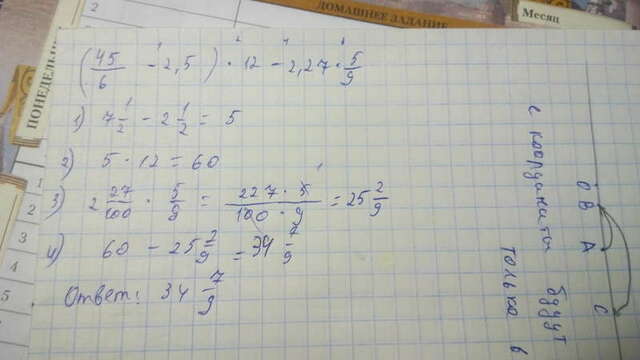 ДОМАШНЕЕ ЗАДАНИЕ
Месяц
ПОНЕДЕЛЬ
(45/6 - 2,5) · 12 - 2,27 · 5/9
1) 7 1/2 - 2 1/2 = 5
2) 5 · 12 = 60
3) 2 27/100 · 5/9 = 227 · 5/100 · 9 = 25 2/9
4) 60 - 25 2/9 = 34 7/9
Ответ: 34 7/9
с координаты будут
только в
О В А С
1
2
3
4
5